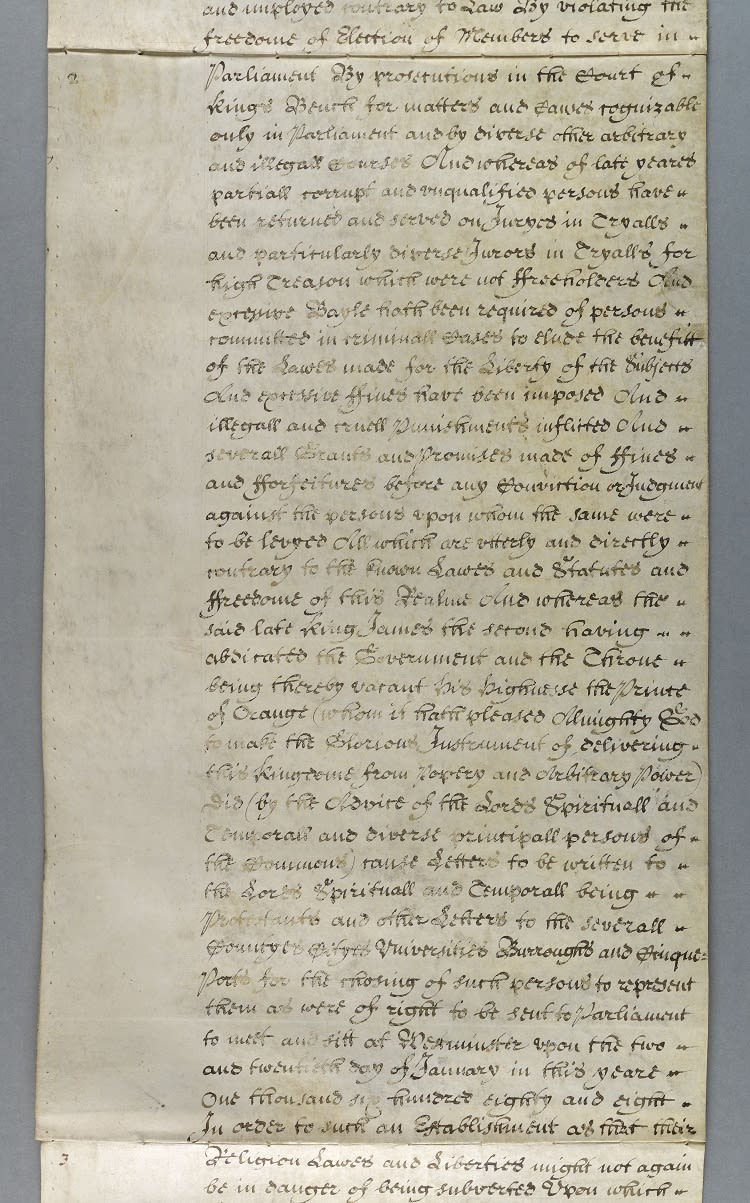 and imployed contrary to Law By violating the
freedome of Election of Members to serve in
2
Parliament By prosecutions in the Court of
Kings Bench for matters and Causes cognizable
only in Parliament and by diverse other arbitrary
and illegall Courses And whereas of late yeares
partiall corrupt and unqualified persons have
been returned and served on Juryes in Tryalls
and particularly diverse Jurors in Tryalls for
high Treason which were not ffreeholders And
excessive Bayle hath been required of persons
committed in criminall Cases to elude the benefitt
of the Lawes made for the Liberty of the Subjects
And excessive ffines have been imposed And
illegall and cruell Punishments inflicted And
severall Grants and Promises made of ffines
and fforfeitures before any Conviction or Judgment
against the persons vpon whom the same were
to be levyed All which are vtterly and directly
contrary to the known Lawes and Statutes and
ffreedome of this Realme And whereas the
said late King James the second having
abdicated the Government and the Throne
being thereby vacant His Highnesse the Prince
of Orange (whom it hath pleased Almighty God
to make the Glorious Instrument of delivering
this Kingdome from Popery and Arbitrary Power)
Did (by the Advice of the Lords Spirituall and
Temporall and diverse principall persons of
the Commons) cause Letters to be written to
the Lords Spirituall and Temporall being
Protestants and other Letters to the severall
Countyes Cityes Vniversities Burroughs and Cinque=
Ports for the chosing of such persons to represent
them as were of right to be sent to Parliament
to meet and sitt at Westminster vpon the two
and twentieth day of January in this yeare
One thousand six hundred eighty and eight
In order to such an Establishment as that their
3
Religion Lawes and Liberties might not again
be in danger of being subverted Vpon which